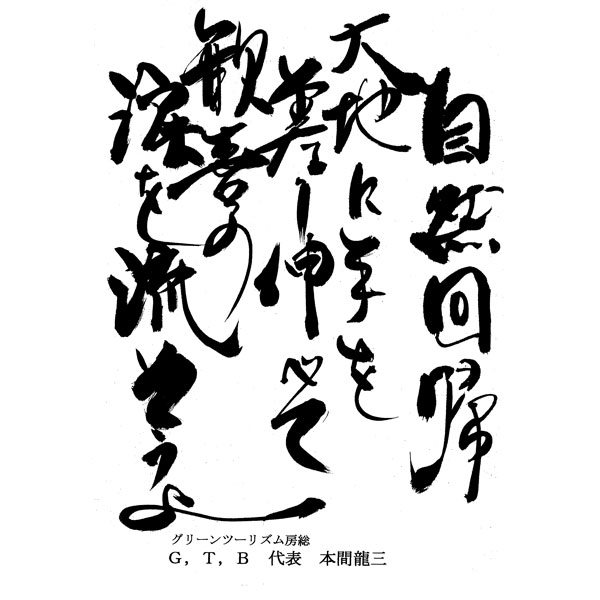 自然回帰
大地に手を
差し伸べて
歓喜の
涙を流そうよ
グリーンツーリズム房総
G，T，B　代表　本間龍三